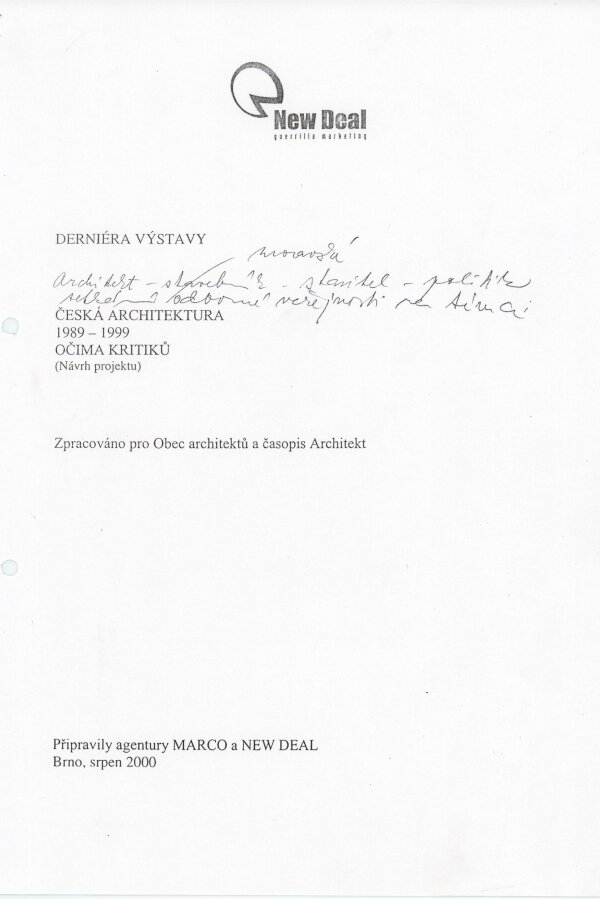 New Deal
guerrilla marketing
DERNIÉRA VÝSTAVY
moravská
Architekt – stavebník – stavitel – politika
setkání odborné veřejnosti na téma:
ČESKÁ ARCHITEKTURA
1989 – 1999
OČIMA KRITIKŮ
(Návrh projektu)
Zpracováno pro Obec architektů a časopis Architekt
Připravily agentury MARCO a NEW DEAL
Brno, srpen 2000